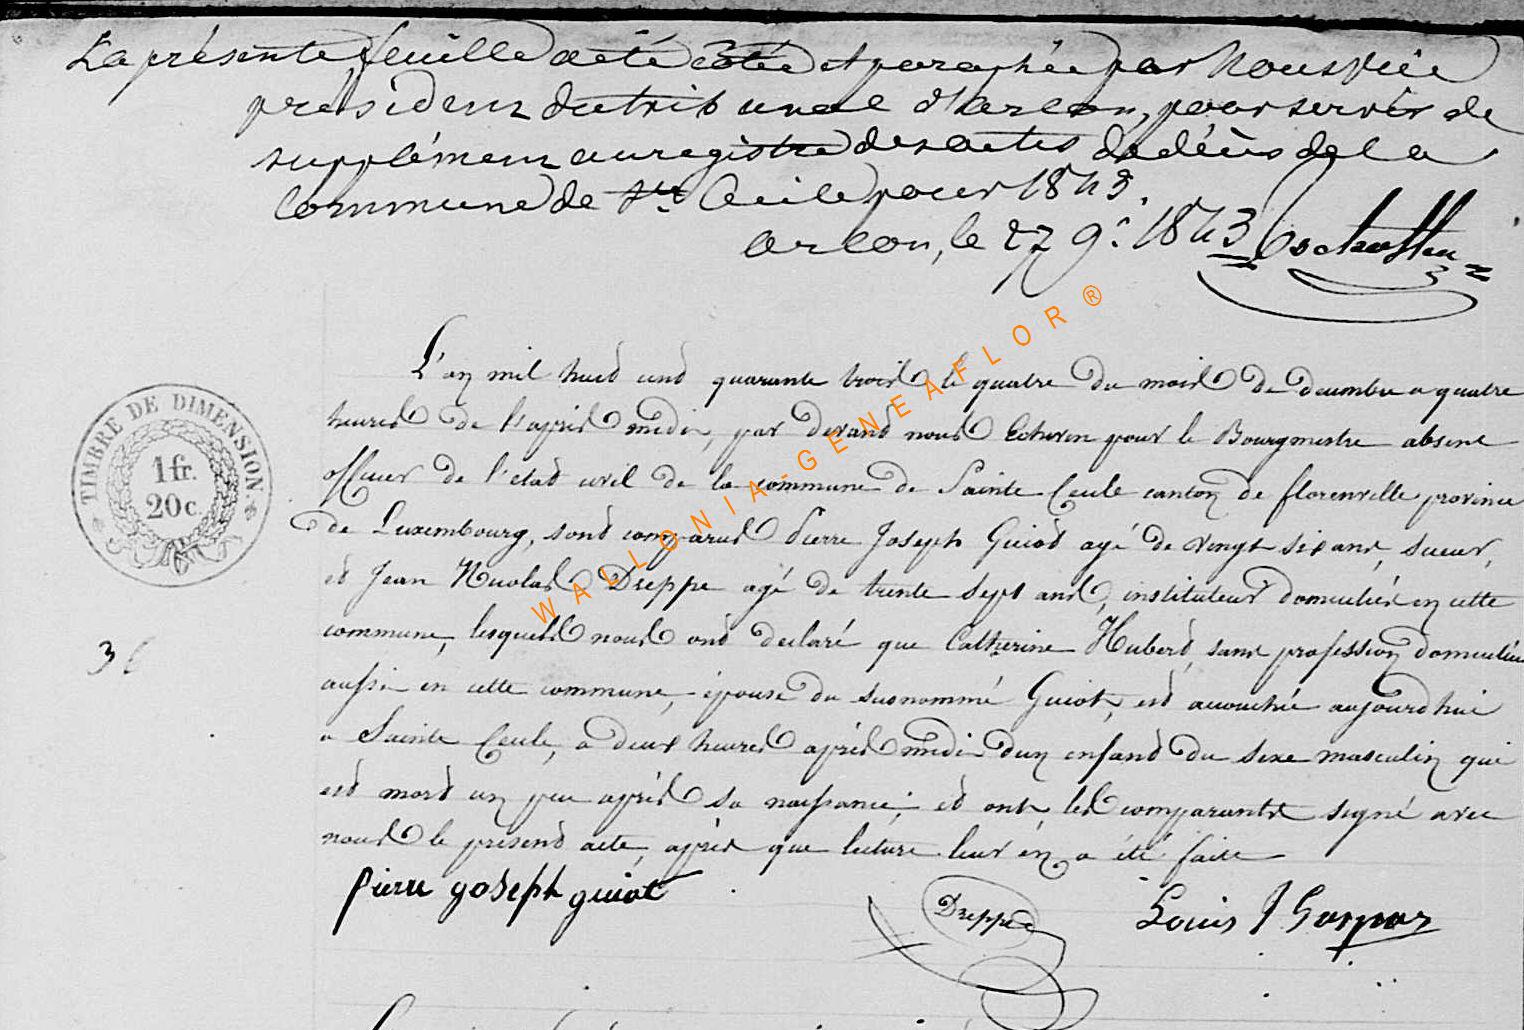 La présente feuille a été cotée et paraphée par Nous vice
président du tribunal d'arlon, pour servir de
supplément au registre des actes de décès de la
Commune de Ste Cécile pour 1843.
arlon, le 27 9.e 1843
TIMBRE DE DIMENSION.
1 fr.
20 c.
L'an mil huit cent quarante trois le quatre du mois de decembre a quatre
heures de l'après midi, par devant nous Echevin pour le Bourgmestre absent
officier de l'état civil de la commune de Sainte Cecile canton de florenville province
de Luxembourg, sont comparus Pierre Joseph Guiot agé de vingt six ans,
et Jean Nicolas Dreppe agé de trente sept ans, instituteur domiciliés en cette
36
commune, lesquels nous ont declaré que Catherine Hubert, sans profession domiciliée
aussi en cette commune, épouse du susnommé Guiot, est accouchée aujourd'hui
a Sainte Cecile, a deux heures après midi d'un enfant du sexe masculin qui
est mort un peu après sa naissance; et ont les comparants signé avec
nous le present acte, après que lecture leur en a été faite
pierre joseph guiot
Dreppe
Louis J Gaspar
WALLONIA-GENEAFLOR®